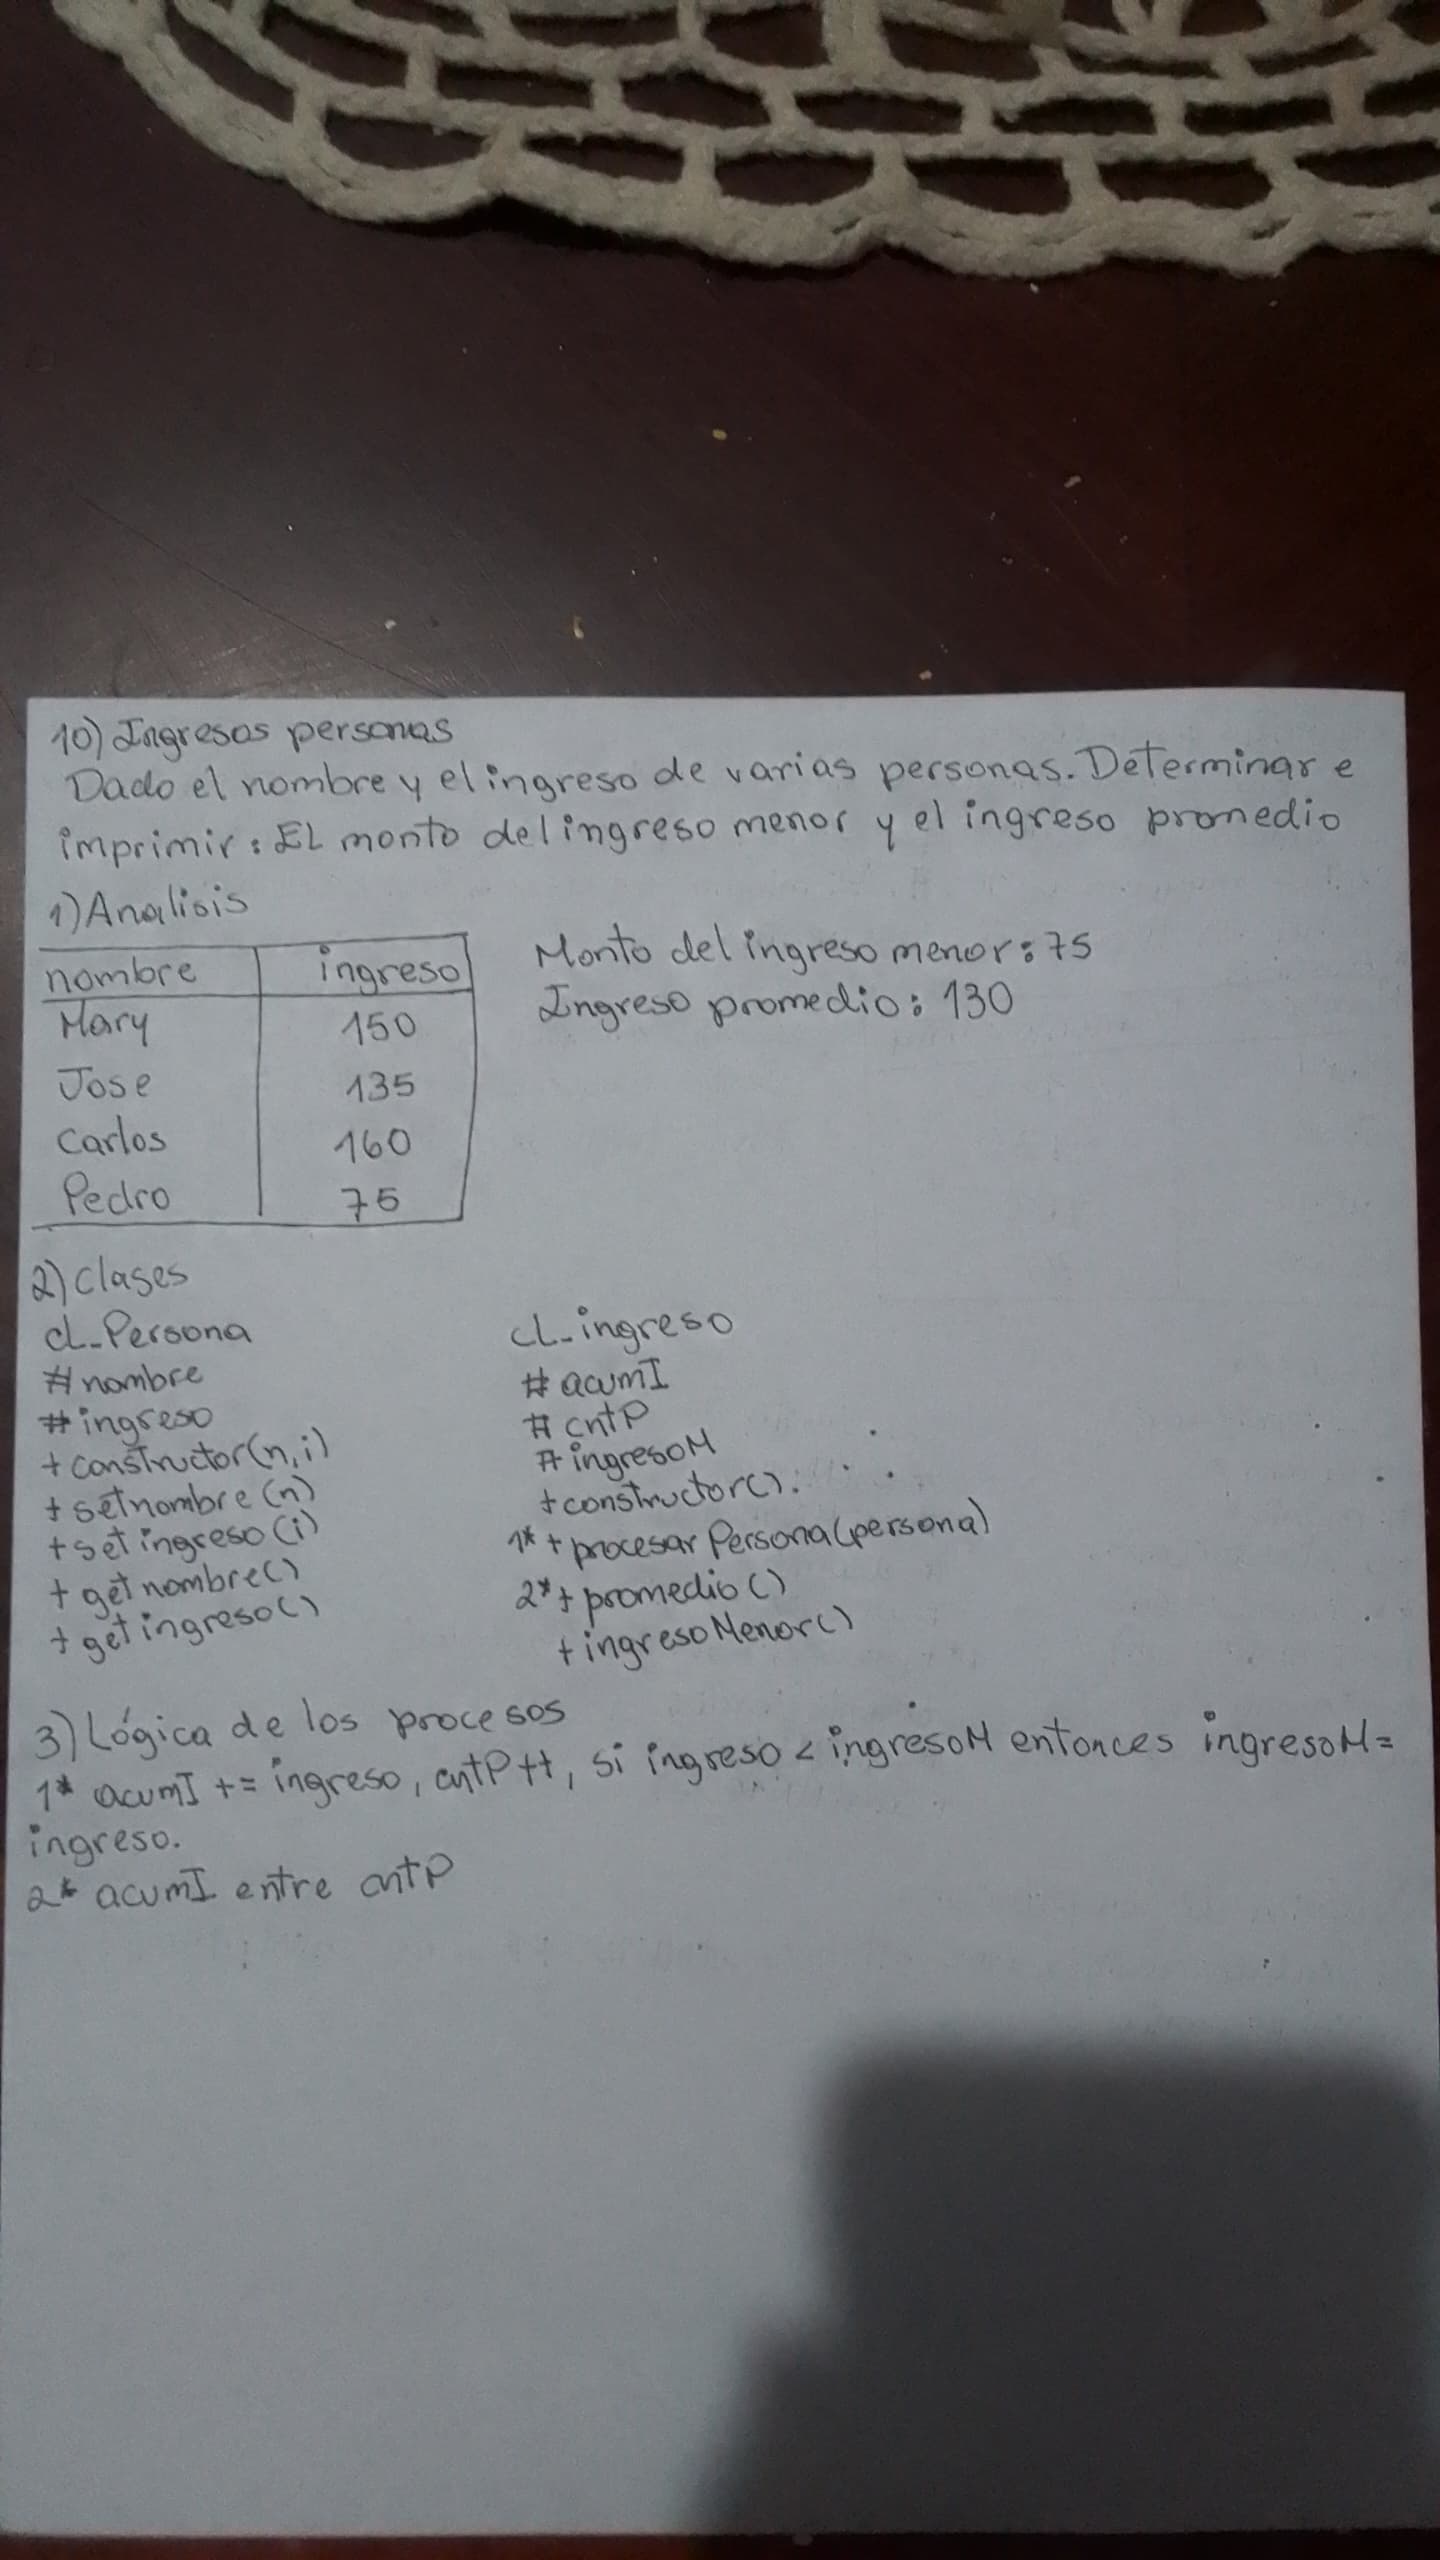 10) Ingresos personas
Dado el nombre y el ingreso de varias personas. Determinar e
imprimir: EL monto del ingreso menor y el ingreso promedio
1) Analisis
nombre ingreso
Mary 150
Jose 135
Carlos 160
Pedro 75
Monto del ingreso menor: 75
Ingreso promedio: 130
2) Clases
cL_Persona
# nombre
# ingreso
+ constructor(n, i)
+ setnombre (n)
+ set ingreso (i)
+ get nombre()
+ get ingreso()
cL_ingreso
# acumI
# cntP
# ingresoM
+ constructor().
1* + procesar Persona(persona)
2* + promedio ()
+ ingresoMenor()
3) Lógica de los procesos
1* acumI += ingreso, cntP++, si ingreso < ingresoM entonces ingresoM=
ingreso.
2* acumI entre cntP